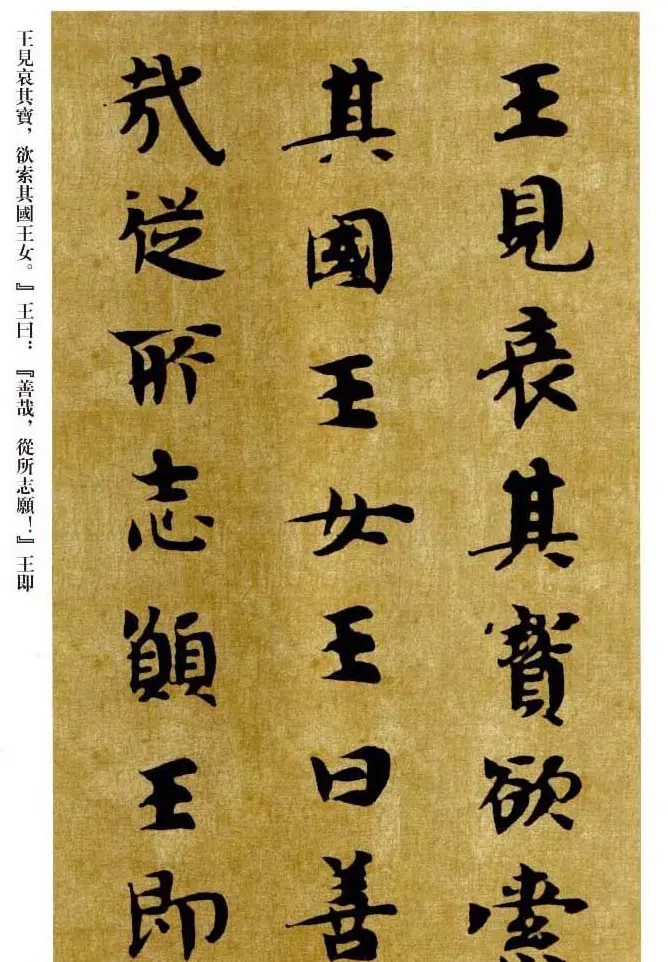 王見哀其寶欲
其國王女王曰善
哉從所志願王即
王見哀其寶，欲索其國王女。』王曰：『善哉，從所志願！』王即